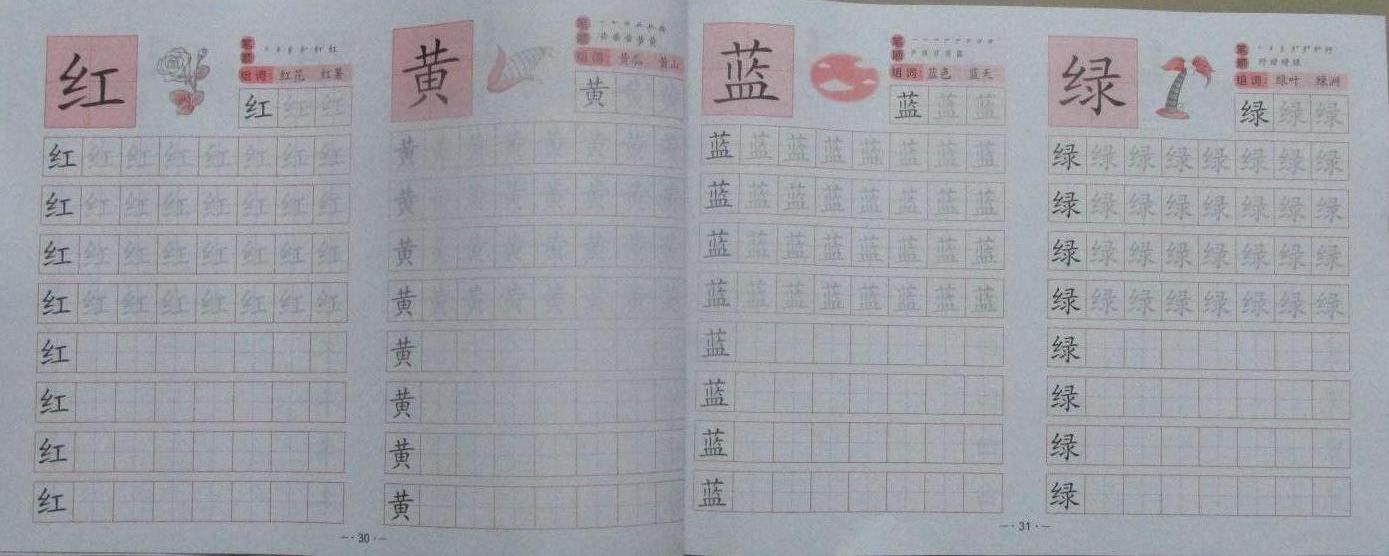 红
笔顺
组词：红花 红薯
红 红 红
红 红 红 红 红 红 红 红
红 红 红 红 红 红 红 红
红 红 红 红 红 红 红 红
红 红 红 红 红 红 红 红
红
红
红
红
黄
笔顺
组词：黄瓜 黄山
黄 黄 黄
黄 黄 黄 黄 黄 黄 黄 黄
黄 黄 黄 黄 黄 黄 黄 黄
黄 黄 黄 黄 黄 黄 黄 黄
黄 黄 黄 黄 黄 黄 黄 黄
黄
黄
黄
黄
— · 30 · —
蓝
笔顺
组词：蓝色 蓝天
蓝 蓝 蓝
蓝 蓝 蓝 蓝 蓝 蓝 蓝 蓝
蓝 蓝 蓝 蓝 蓝 蓝 蓝 蓝
蓝 蓝 蓝 蓝 蓝 蓝 蓝 蓝
蓝 蓝 蓝 蓝 蓝 蓝 蓝 蓝
蓝
蓝
蓝
蓝
绿
笔顺
组词：绿叶 绿洲
绿 绿 绿
绿 绿 绿 绿 绿 绿 绿 绿
绿 绿 绿 绿 绿 绿 绿 绿
绿 绿 绿 绿 绿 绿 绿 绿
绿 绿 绿 绿 绿 绿 绿 绿
绿
绿
绿
绿
— · 31 · —